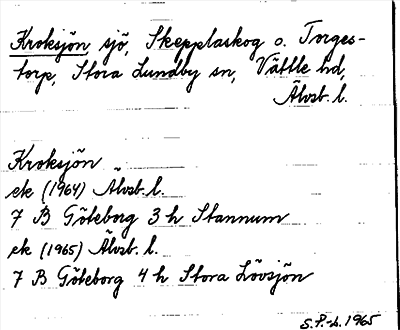 Kroksjön, sjö, Skepplaskog o. Torges-
torp, Stora Lundby sn, Vättle hd,
Älvsb. l.
Kroksjön
ek (1964) Älvsb. l.
7 B Göteborg 3 h Stannum
ek (1965) Älvsb. l.
7 B Göteborg 4 h Stora Lövsjön
S.P.-L. 1965